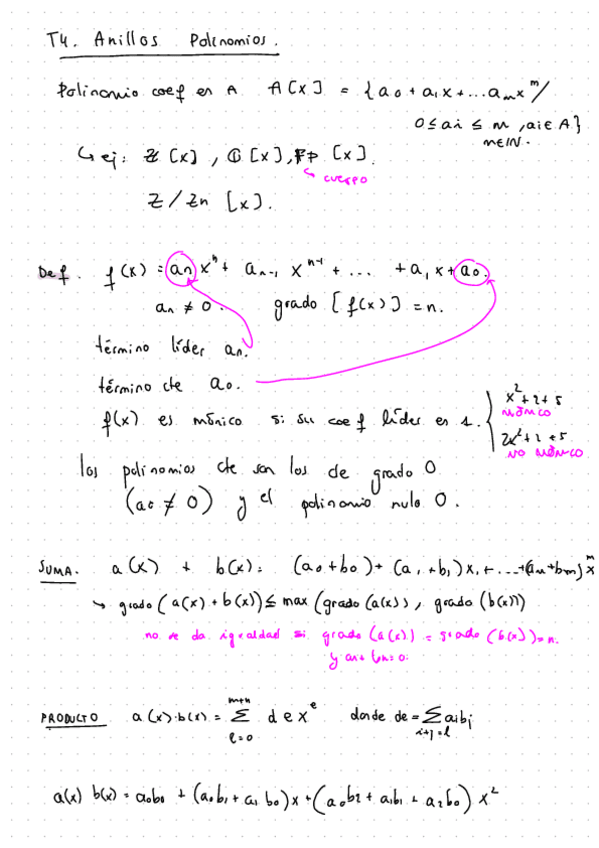 T4. Anillos Polinomios.
Polinomio coef en A A[x] = {a0 + a1x + ... amx^m /
0 ≤ ai ≤ m, ai∈A}
m∈IN.
↳ ej: Z [x], C [x], Fp [x].
cuerpo
Z/Zn [x].
Def. f(x) = an x^n + an-1 x^n-1 + ... + a1 x + a0.
an ≠ 0. grado [f(x)] = n.
término líder an.
término cte a0.
f(x) es mónico si su coef líder es 1.
x^2+2+5
MÓNICO
2x^2+2+5
NO MÓNICO
los polinomios cte son los de grado 0
(a0 ≠ 0) y el polinomio nulo 0.
SUMA. a(x) + b(x) = (a0+b0) + (a1+b1)x1+ ...+(am+bm)x^m
↳ grado (a(x) + b(x)) ≤ max (grado (a(x)), grado (b(x)))
no se da igualdad si grado (a(x)) = grado (b(x)) = n.
y an+bn=0.
PRODUCTO a(x)·b(x) = ∑ e=0 m+n d e x^e donde de = ∑ i+j=e aibj
a(x) b(x) = a0b0 + (a0b1 + a1 b0)x + (a0b2 + a1b1 + a2b0) x^2